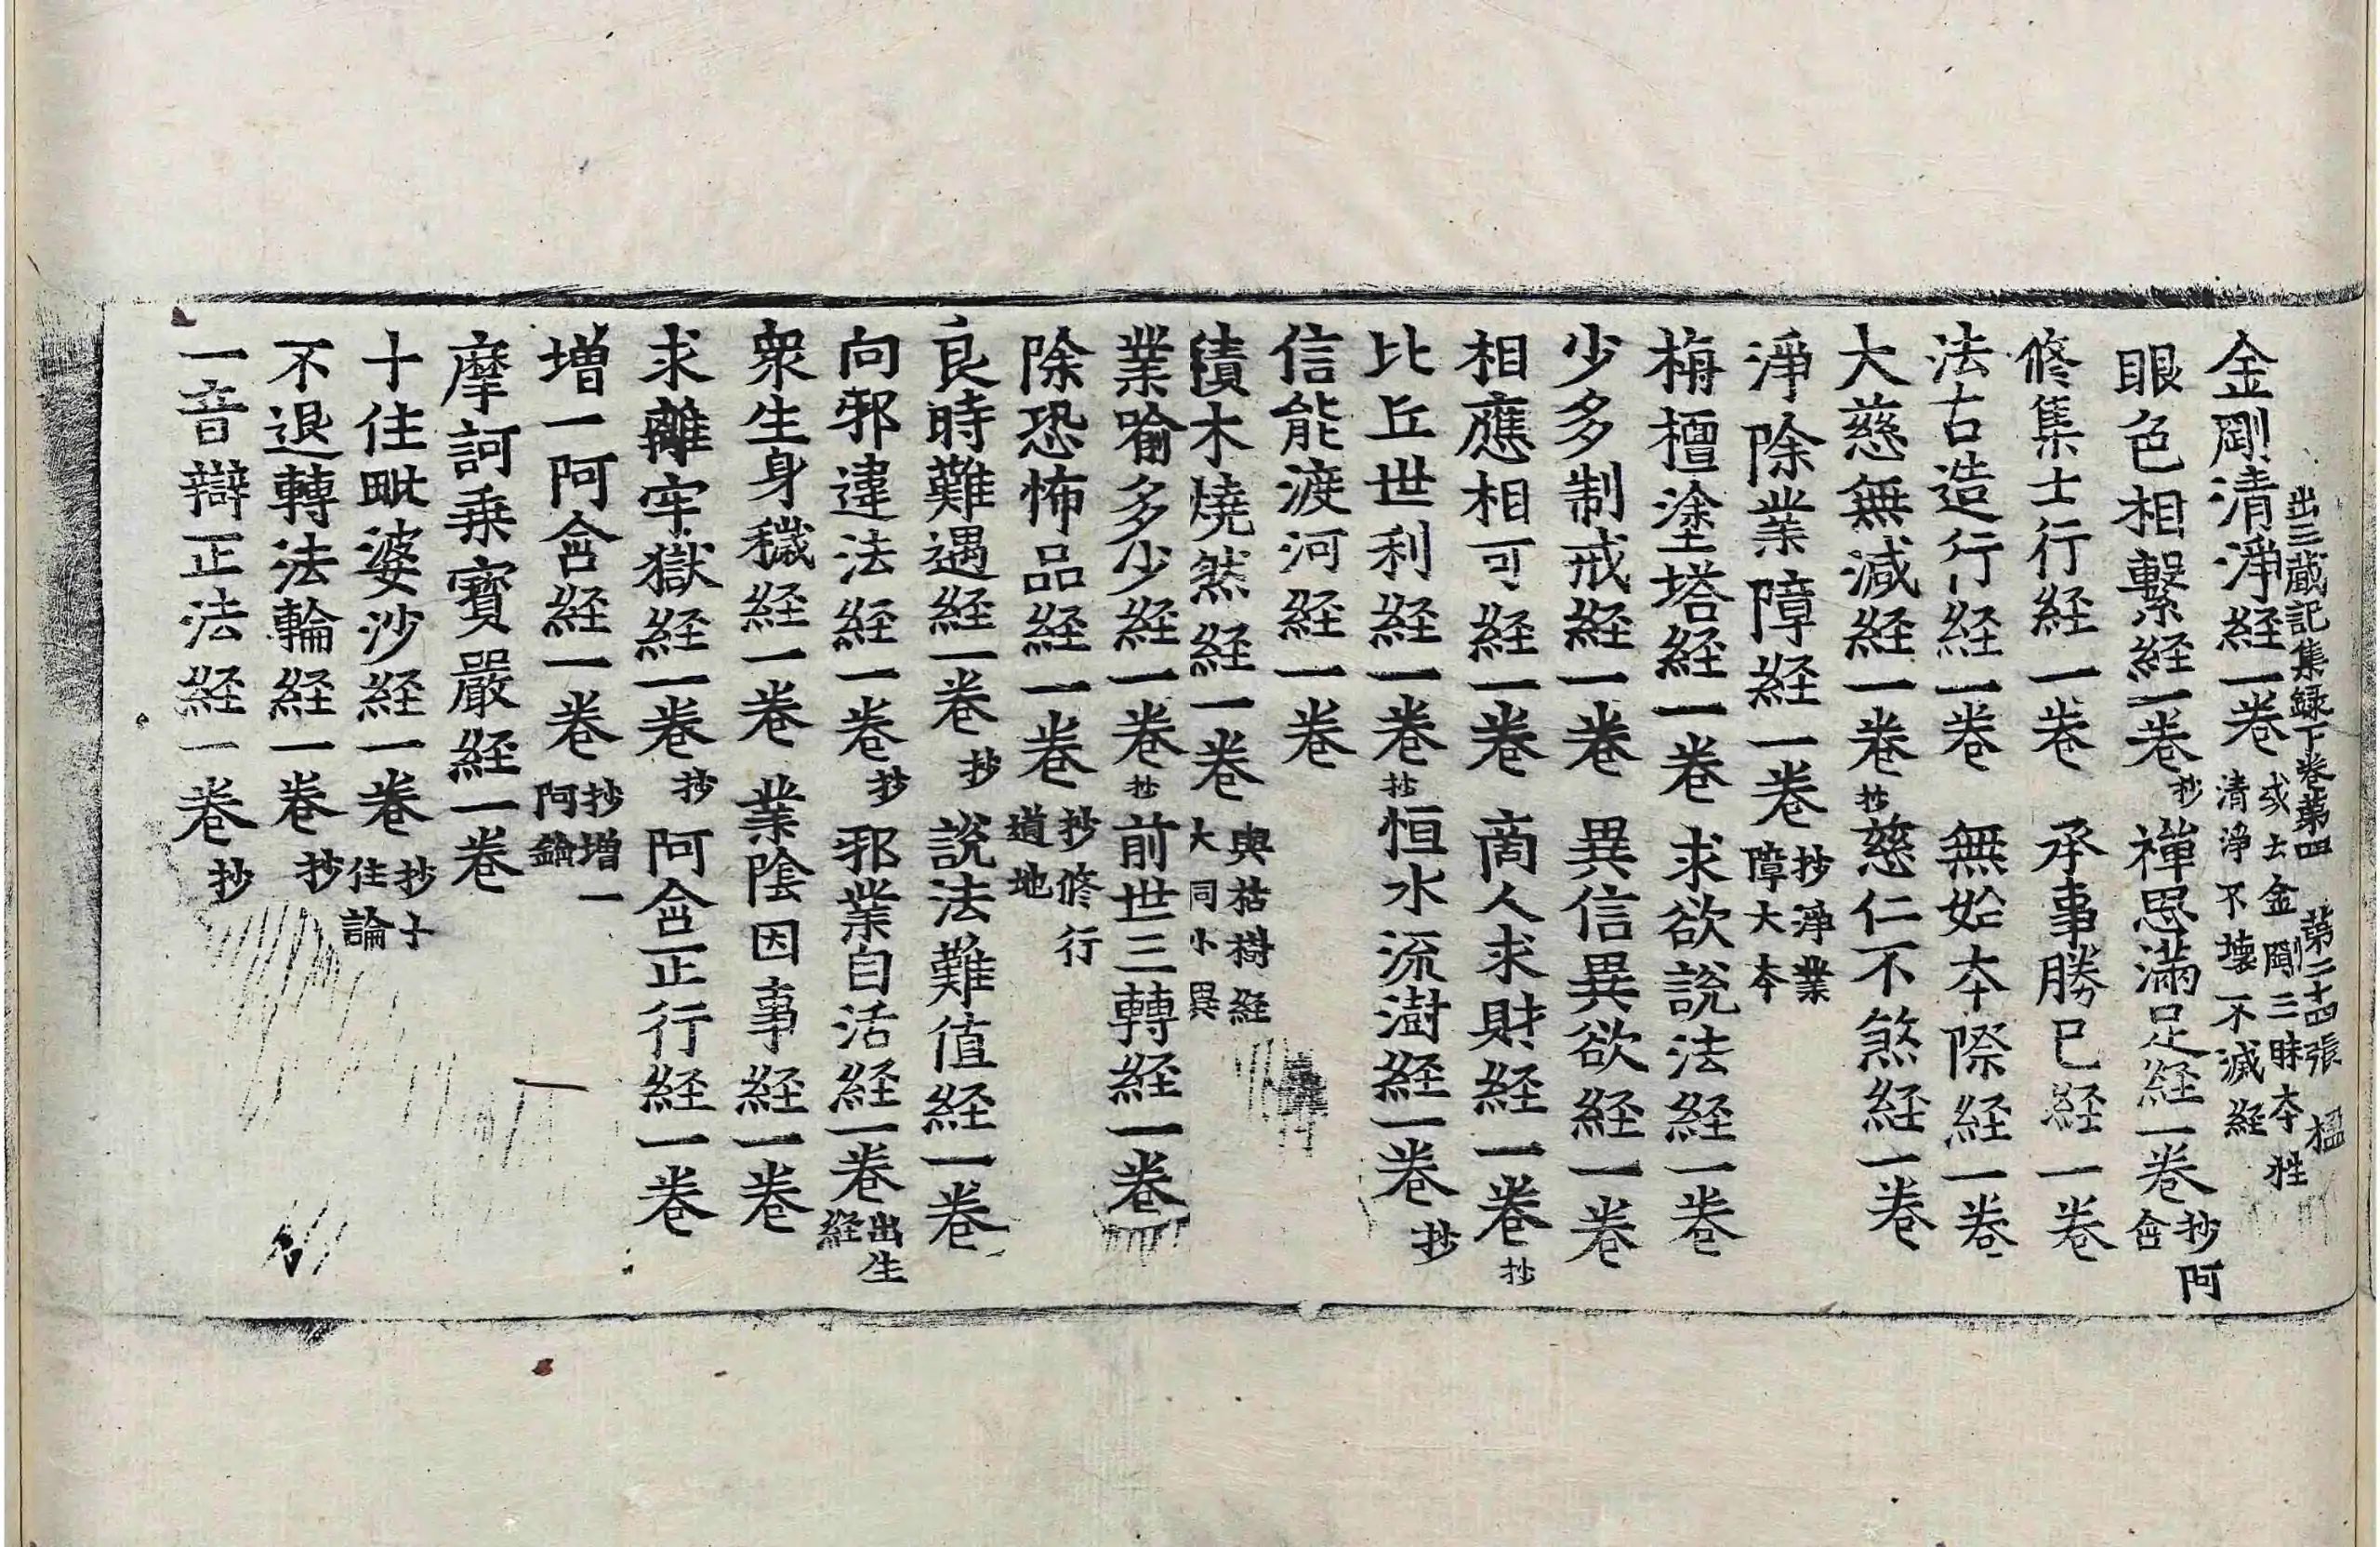 出三蔵記集録下巻第四 第二十四張 楹
金剛清淨経一巻 或云金剛三昧本性清淨不壊不滅経
眼色相繋経一巻 抄 禅思満足経一巻 抄阿含
修集士行経一巻 承事勝已経一巻
法古造行経一巻 無始本際経一巻
大慈無減経一巻 抄 慈仁不煞経一巻
淨除業障経一巻 抄淨業障大本
栴檀塗塔経一巻 求欲説法経一巻
少多制戒経一巻 異信異欲経一巻
相應相可経一巻 商人求財経一巻 抄
比丘世利経一巻 抄 恒水流澍経一巻 抄
信能渡河経一巻
積木燒然経一巻 與枯樹経大同小異
業喻多少経一巻 抄 前世三轉経一巻
除恐怖品経一巻 抄修行道地
良時難遇経一巻 抄 説法難值経一巻
向邪違法経一巻 抄 邪業自活経一巻 出生経
衆生身穢経一巻 業陰因事経一巻
求離牢獄経一巻 抄 阿含正行経一巻
増一阿含経一巻 抄増一阿鋡
摩訶乗寶嚴経一巻
十住毗婆沙経一巻 抄十住論
不退轉法輪経一巻 抄
一音辯正法経一巻 抄